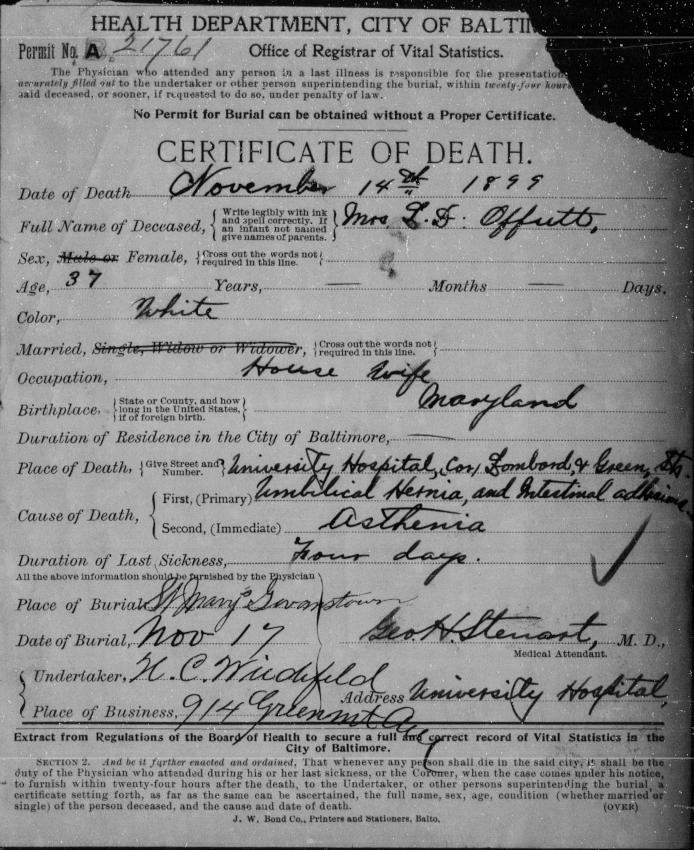 HEALTH DEPARTMENT, CITY OF BALTIM
Permit No. A. 21761 Office of Registrar of Vital Statistics.
The Physician who attended any person in a last illness is responsible for the presentation
accurately filled out to the undertaker or other person superintending the burial, within twenty-four hours
said deceased, or sooner, if requested to do so, under penalty of law.
No Permit for Burial can be obtained without a Proper Certificate.
CERTIFICATE OF DEATH.
Date of Death November 14th 1899
Full Name of Deceased, { Write legibly with ink and spell correctly. If an infant not named give names of parents. } Mrs. L. D. Offutt,
Sex, Male or Female, { Cross out the words not required in this line. }
Age, 37 Years, — Months — Days.
Color, White
Married, Single, Widow or Widower, { Cross out the words not required in this line. }
Occupation, House wife
Birthplace, { State or County, and how long in the United States, if of foreign birth. } Maryland
Duration of Residence in the City of Baltimore, —
Place of Death, { Give Street and Number. } University Hospital, Cor. Lombard, & Green, Sts.
Cause of Death, { First, (Primary) Umbilical Hernia, and Intestinal adhesions
Second, (Immediate) Asthenia
Duration of Last Sickness, Four days.
All the above information should be furnished by the Physician
Place of Burial St Mary's Govanstown
Date of Burial, Nov 17 Geo. H. Steuart, M. D.,
Medical Attendant.
Undertaker, H. C. Wiedefeld
Address University Hospital,
Place of Business, 914 Greenmt Ave
Extract from Regulations of the Board of Health to secure a full and correct record of Vital Statistics in the
City of Baltimore.
SECTION 2. And be it further enacted and ordained, That whenever any person shall die in the said city, it shall be the
duty of the Physician who attended during his or her last sickness, or the Coroner, when the case comes under his notice,
to furnish within twenty-four hours after the death, to the Undertaker, or other persons superintending the burial, a
certificate setting forth, as far as the same can be ascertained, the full name, sex, age, condition (whether married or
single) of the person deceased, and the cause and date of death. (OVER)
J. W. Bond Co., Printers and Stationers, Balto.